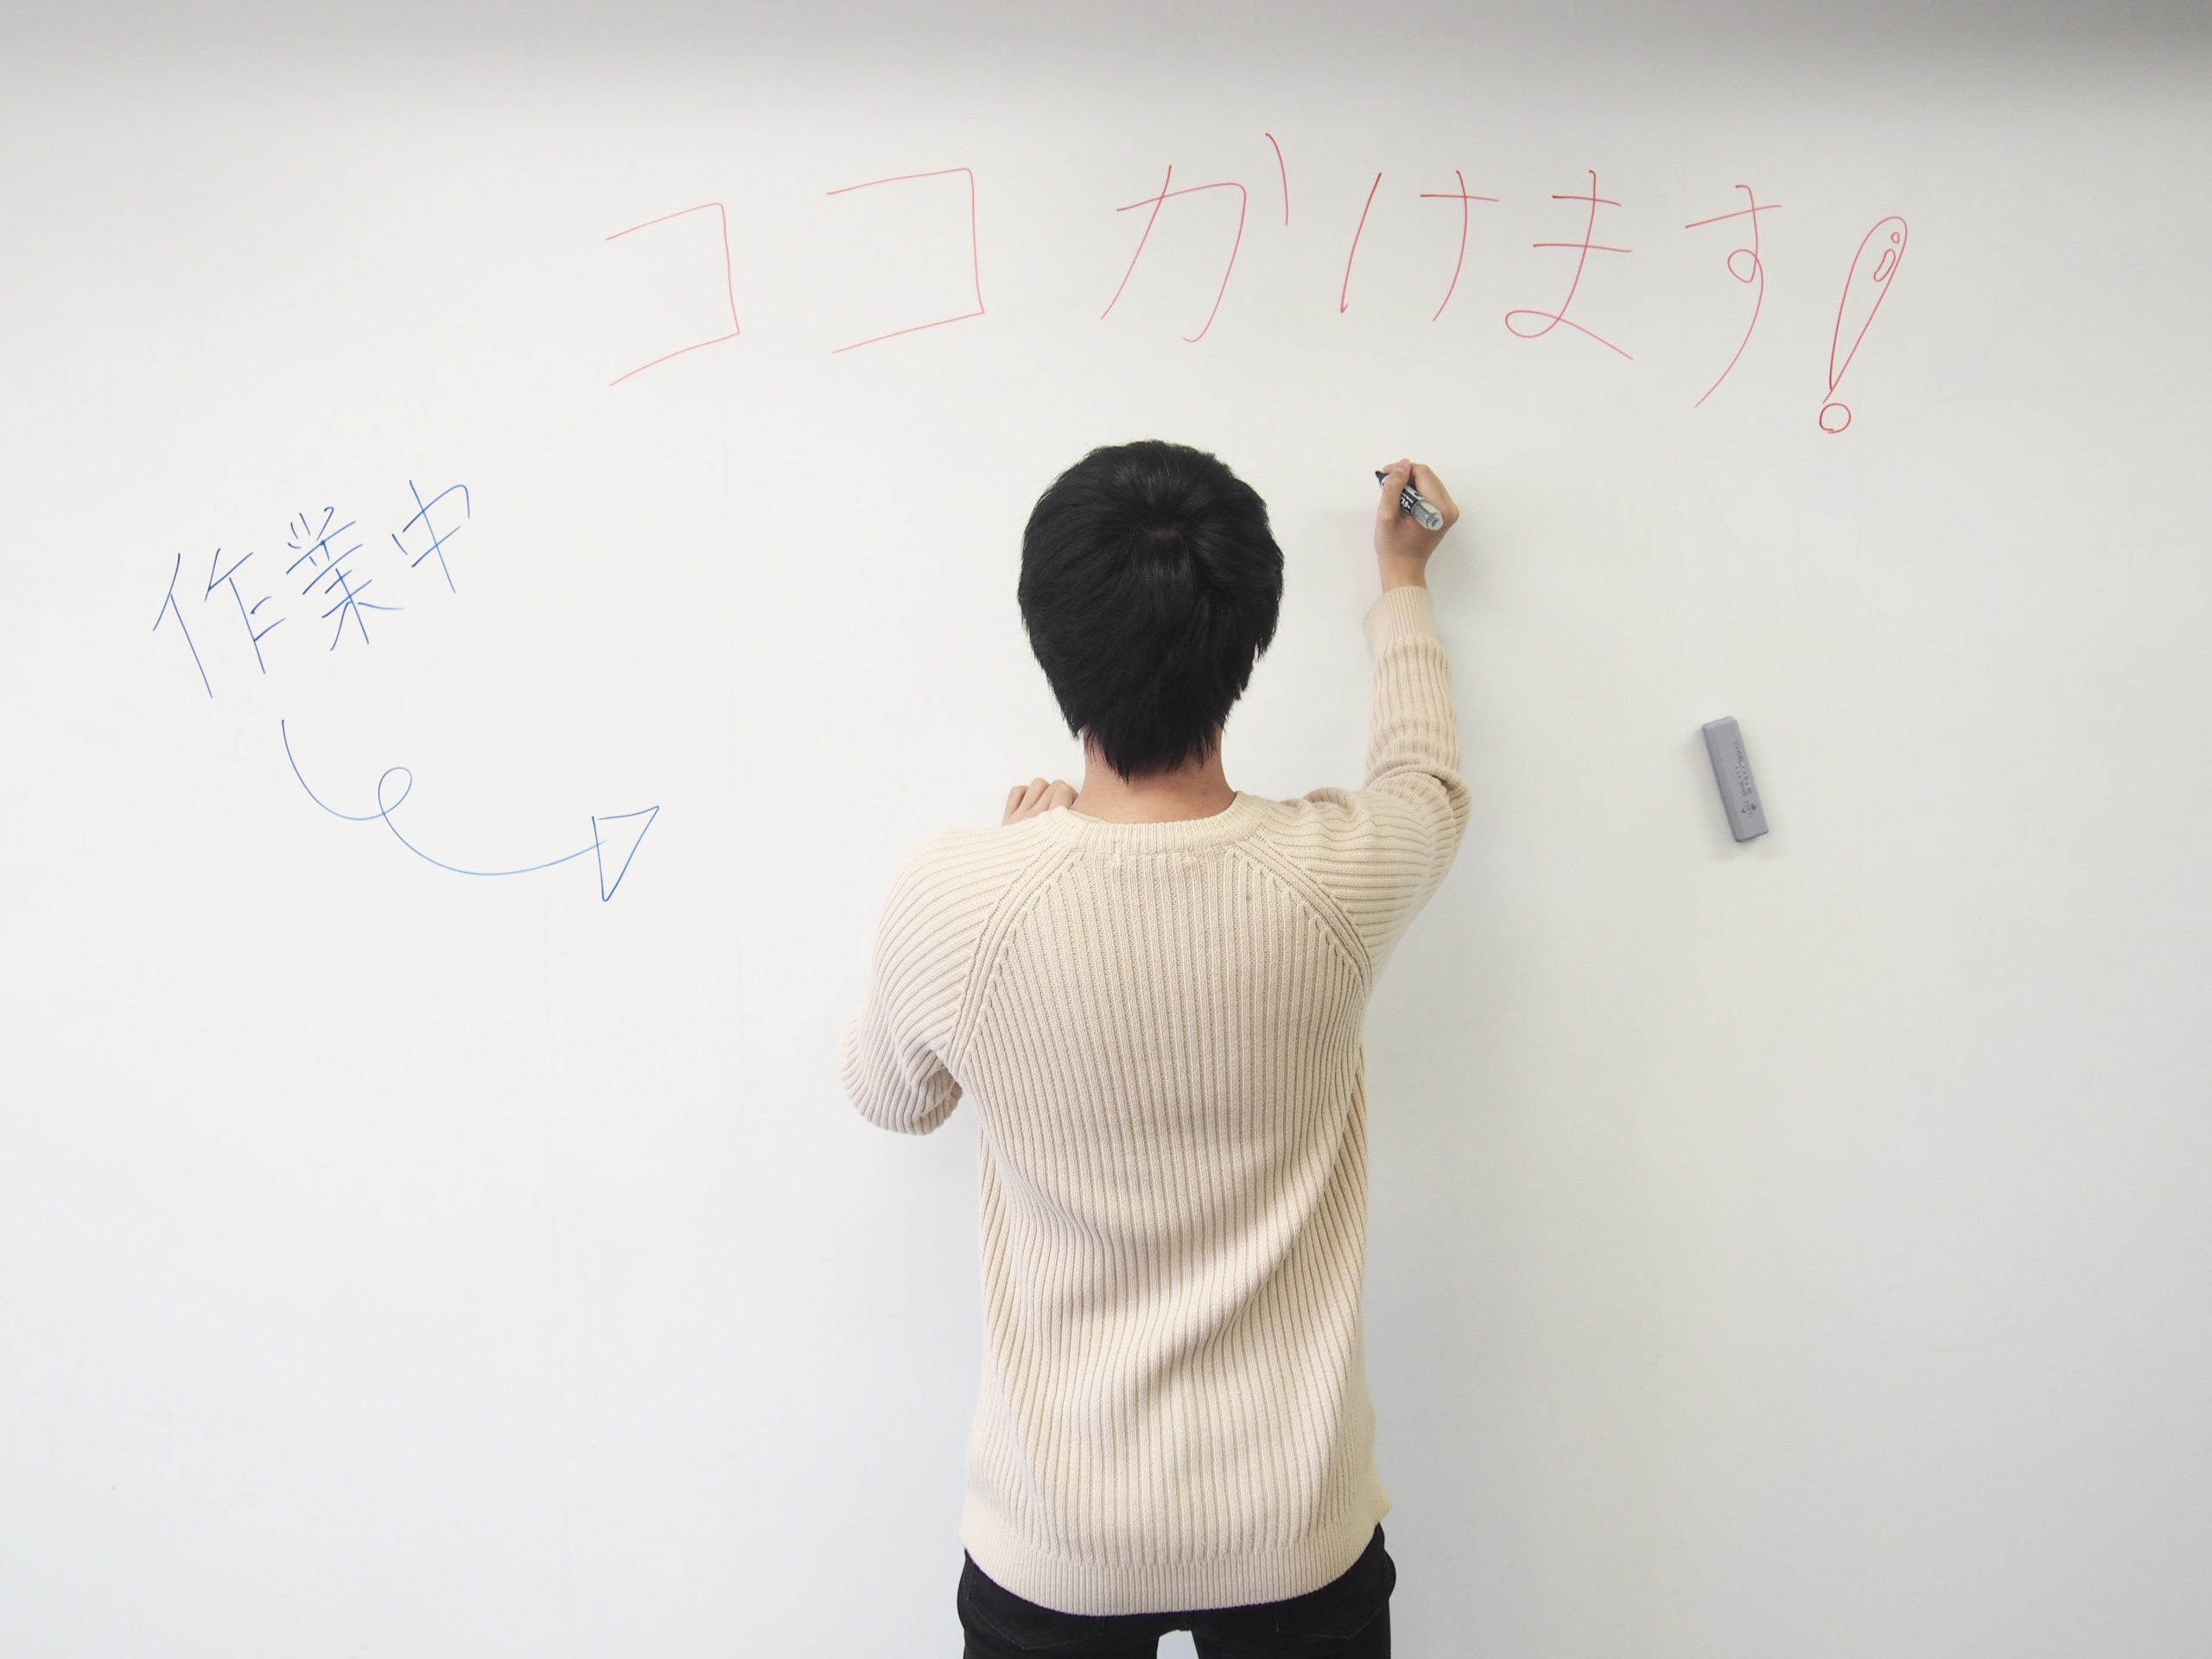 ココかけます!
作業中